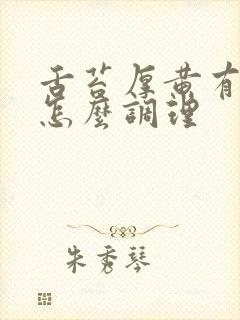 舌苔厚黄有
怎麼調理
朱秀琴